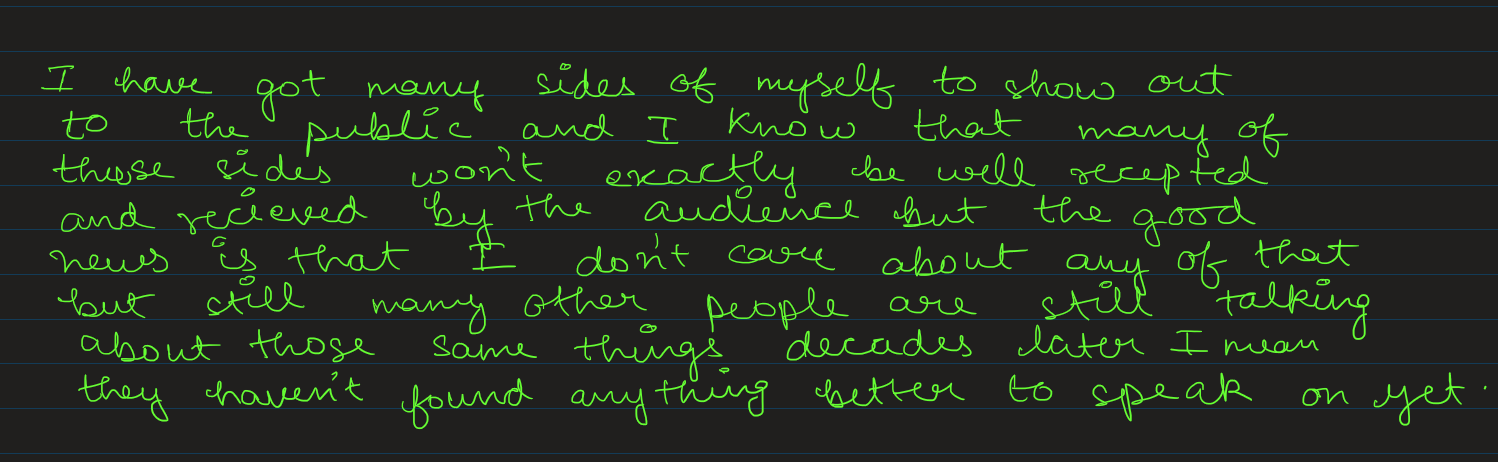 I have got many sides of myself to show out
to the public and I know that many of
those sides won't exactly be well recepted
and recieved by the audience but the good
news is that I don't care about any of that
but still many other people are still talking
about those same things decades later I mean
they haven't found anything better to speak on yet.